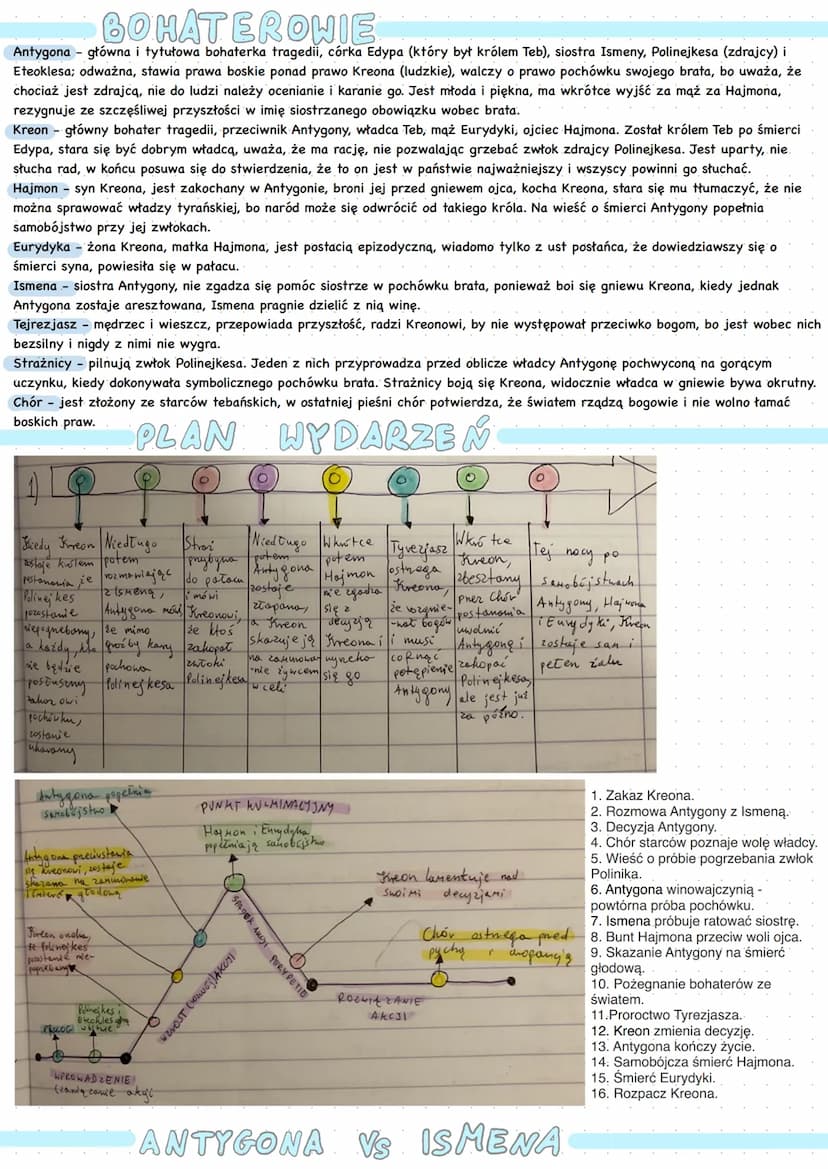 BOHATEROWIE
Antygona – główna i tytułowa bohaterka tragedii, córka Edypa (który był królem Teb), siostra Ismeny, Polinejkesa (zdrajcy) i
Eteoklesa; odważna, stawia prawa boskie ponad prawo Kreona (ludzkie), walczy o prawo pochówku swojego brata, bo uważa, że
chociaż jest zdrajcą, nie do ludzi należy ocenianie i karanie go. Jest młoda i piękna, ma wkrótce wyjść za mąż za Hajmona,
rezygnuje ze szczęśliwej przyszłości w imię siostrzanego obowiązku wobec brata.
Kreon – główny bohater tragedii, przeciwnik Antygony, władca Teb, mąż Eurydyki, ojciec Hajmona. Został królem Teb po śmierci
Edypa, stara się być dobrym władcą, uważa, że ma rację, nie pozwalając grzebać zwłok zdrajcy Polinejkesa. Jest uparty, nie
słucha rad, w końcu posuwa się do stwierdzenia, że to on jest w państwie najważniejszy i wszyscy powinni go słuchać.
Hajmon – syn Kreona, jest zakochany w Antygonie, broni jej przed gniewem ojca, kocha Kreona, stara się mu tłumaczyć, że nie
można sprawować władzy tyrańskiej, bo naród może się odwrócić od takiego króla. Na wieść o śmierci Antygony popełnia
samobójstwo przy jej zwłokach.
Eurydyka – żona Kreona, matka Hajmona, jest postacią epizodyczną, wiadomo tylko z ust posłańca, że dowiedziawszy się o
śmierci syna, powiesiła się w pałacu.
Ismena – siostra Antygony, nie zgadza się pomóc siostrze w pochówku brata, ponieważ boi się gniewu Kreona, kiedy jednak
Antygona zostaje aresztowana, Ismena pragnie dzielić z nią winę.
Tejrezjasz – mędrzec i wieszcz, przepowiada przyszłość, radzi Kreonowi, by nie występował przeciwko bogom, bo jest wobec nich
bezsilny i nigdy z nimi nie wygra.
Strażnicy – pilnują zwłok Polinejkesa. Jeden z nich przyprowadza przed oblicze władcy Antygonę pochwyconą na gorącym
uczynku, kiedy dokonywała symbolicznego pochówku brata. Strażnicy boją się Kreona, widocznie władca w gniewie bywa okrutny.
Chór – jest złożony ze starców tebańskich, w ostatniej pieśni chór potwierdza, że światem rządzą bogowie i nie wolno łamać
boskich praw.
PLAN WYDARZEŃ
1)
Kiedy Kreon
zostaje królem
postanawia, że
Polinejkes
pozostanie
niepogrzebany,
a każdy, kto
nie będzie
posłuszny
zakazowi
pochówku,
zostanie
ukarany
Niedługo
potem
rozmawiając
z Ismeną,
Antygona mówi,
że mimo
groźby kary
pochowa
Polinejkesa
Straż
przybywa
do pałacu
i mówi
Kreonowi,
że ktoś
zakopał
zwłoki
Polinejkesa
Niedługo
potem
Antygona
zostaje
złapana,
a Kreon
skazuje ją
na zamurowa-
nie żywcem
w celi
Wkrótce
potem
Hajmon
nie zgadza
się z
decyzją
Kreona i
wyrzeka
się go
Tyrezjasz
ostrzega
Kreona,
że rozgnie-
wał bogów
i musi
cofnąć
potępienie
Antygony
Wkrótce
Kreon,
zbesztany
przez Chór
postanawia
uwolnić
Antygonę i
zakopać
Polinejkesa,
ale jest już
za późno.
Tej nocy po
samobójstwach
Antygony, Hajmona
i Eurydyki, Kreon
zostaje sam i
pełen żalu
Antygona popełnia
samobójstwo
PUNKT KULMINACYJNY
Hajmon i Eurydyka
popełniają samobójstwo
Antygona przeciwstawia
się Kreonowi, zostaje
skazana na zamurowanie
i śmierć głodową
Kreon lamentuje nad
swoimi decyzjami
Kreon
że Polinejkes
pozostanie nie-
pogrzebany
Chór ostrzega przed
pychą i arogancją
SPADEK AKCJI PERYPETIO
WZROST AKCJI
ROZWIĄZANIE
AKCJI
Polinejkes i
Eteokles
PROLOG
WPROWADZENIE
(zawiązanie akcji
1. Zakaz Kreona.
2. Rozmowa Antygony z Ismeną.
3. Decyzja Antygony.
4. Chór starców poznaje wolę władcy.
5. Wieść o próbie pogrzebania zwłok
Polinika.
6. Antygona winowajczynią -
powtórna próba pochówku.
7. Ismena próbuje ratować siostrę.
8. Bunt Hajmona przeciw woli ojca.
9. Skazanie Antygony na śmierć
głodową.
10. Pożegnanie bohaterów ze
światem.
11.Proroctwo Tyrezjasza.
12. Kreon zmienia decyzję.
13. Antygona kończy życie.
14. Samobójcza śmierć Hajmona.
15. Śmierć Eurydyki.
16. Rozpacz Kreona.
ANTYGONA vs ISMENA